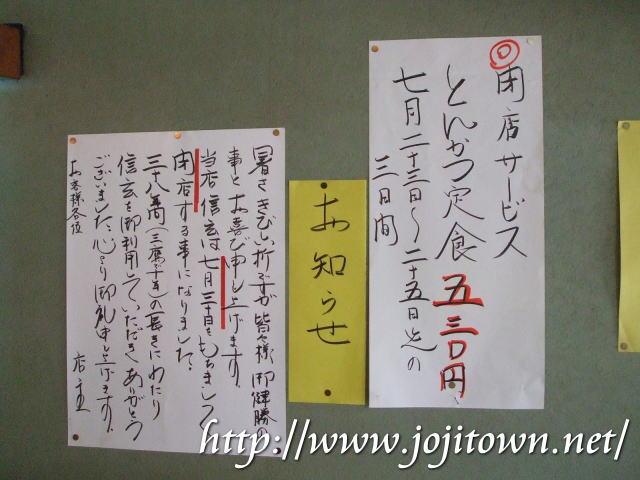 ◎閉店サービス
とんかつ定食 五三〇円
七月二十三日〜二十五日迄の
三日間
お知らせ
暑さきびしい折ですが皆々様御健勝の
事とお喜び申し上げます。
当店信玄は七月三十日をもちまして
閉店する事になりました。
三十八年間(三鷹で十年)の長きにわたり
信玄を御利用していただきありがとう
ございました。心より御礼申し上げます。
お客様各位
店主
http://www.jojitown.net/